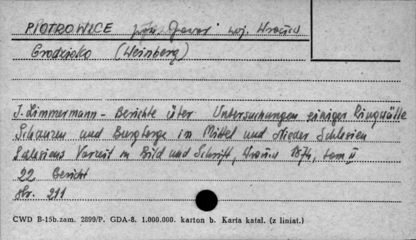 PIOTROWICE pow. Jawor woj. Wrocław
Grodzisko (Weinberg)
J. Zimmermann - Berichte über Untersuchungen einiger Ringwälle
Schanzen und Burgberge in Mittel und Nieder Schlesien
Schlesiens Vorzeit in Bild und Schrift, 1874, tom II
22 Bericht
Nr. 211
CWD B-15b. zam. 2899/P. GDA-8. 1.000.000. karton b. Karta katal. (z liniat.)